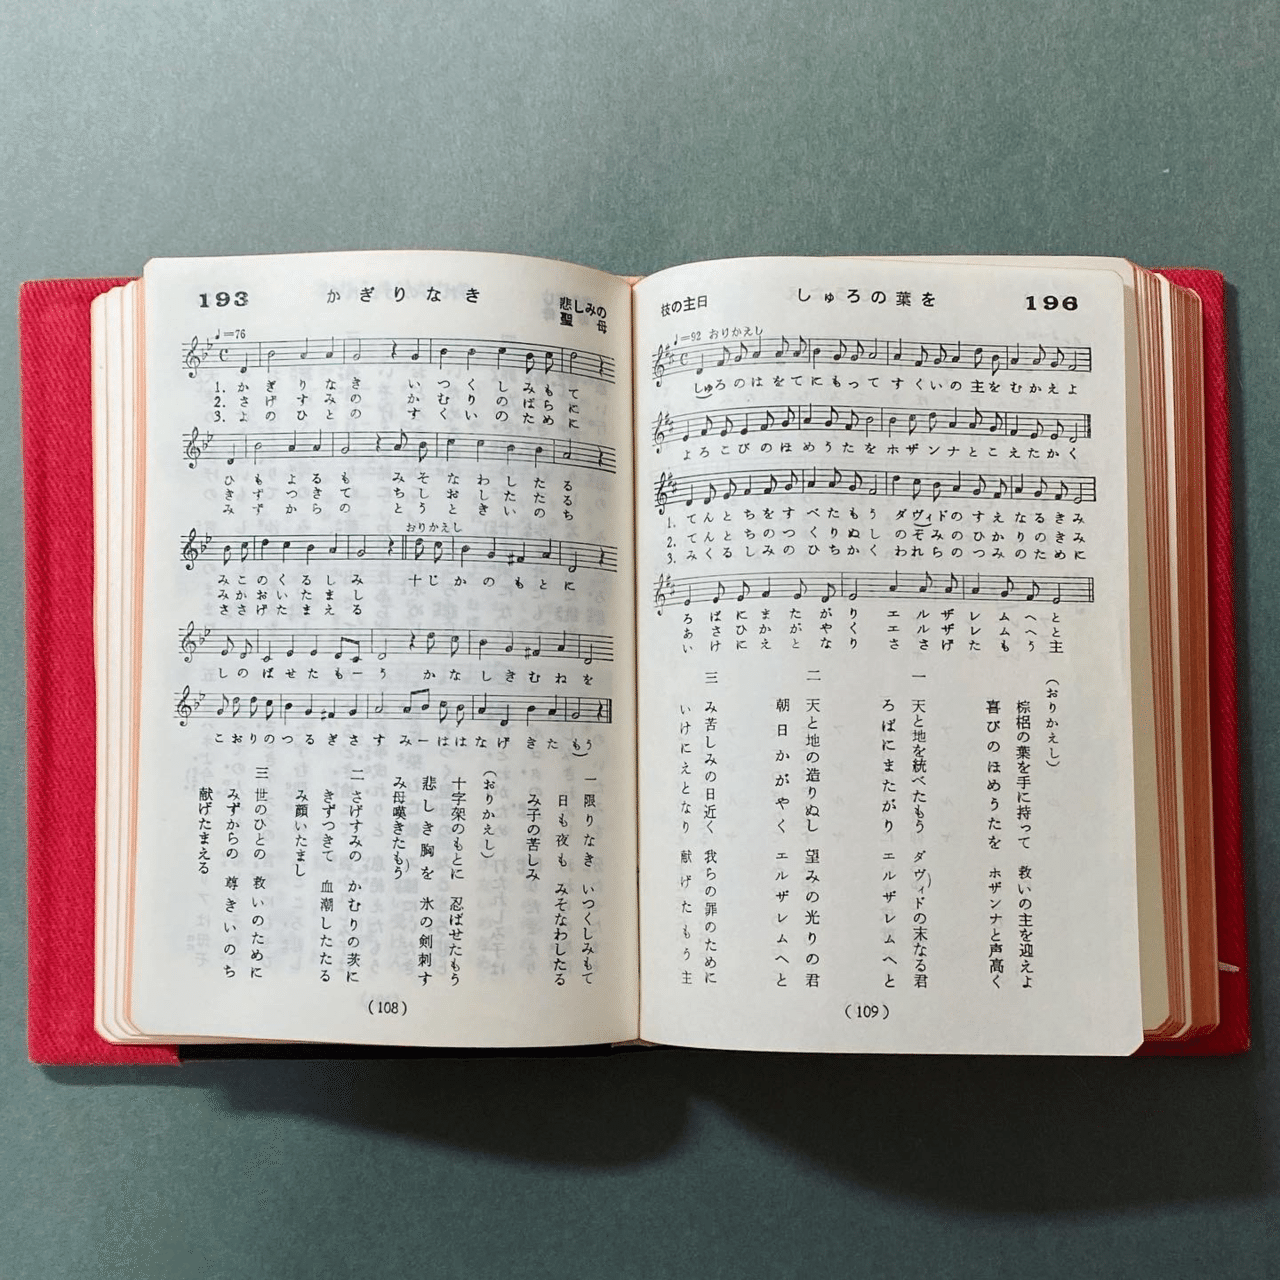 193
かぎりなき
悲しみの
聖母
♩=76
1. かぎりなき いつくしみもて
2. さげすみの かむりのばらに
3. よのひとの すくいのために
ひもよるも みそなわしたる
きずつきて ちしおしたたる
みずからの とうときいのち
みこのくるしみ
おりかえし
十じかのもとに
みかおいたまし
ささげたまえる
しのばせたもーう かなしきむねを
こおりのつるぎさす みーははなげきたもう
一 限りなき いつくしみもて
日も夜も みそなわしたる
み子の苦しみ
(おりかえし)
十字架のもとに 忍ばせたもう
悲しき胸を 氷の剣刺す
み母嘆きたもう
二 さげすみの かむりの茨に
きずつきて 血潮したたる
み顔いたまし
三 世のひとの 救いのために
みずからの 尊きいのち
献げたまえる
(108)
枝の主日
しゅろの葉を
196
♩=92 おりかえし
しゅろのはをてにもって すくいの主をむかえよ
よろこびのほめうたを ホザンナとこえたかく
1. てんとちをすべたもう ダヴィドのすえなるきみ
2. てんとちのつくりぬし のぞみのひかりのきみ
3. みくるしみのひちかく われらのつみのために
ろばにまたがり エルザレムへと
あさひかがやく エルザレムへと
いけにえとなり ささげたもう主
(おりかえし)
棕梠の葉を手に持って 救いの主を迎えよ
喜びのほめうたを ホザンナと声高く
一 天と地を統べたもう ダヴィドの末なる君
ろばにまたがり エルザレムへと
二 天と地の造りぬし 望みの光りの君
朝日かがやく エルザレムへと
三 み苦しみの日近く 我らの罪のために
いけにえとなり 献げたもう主
(109)